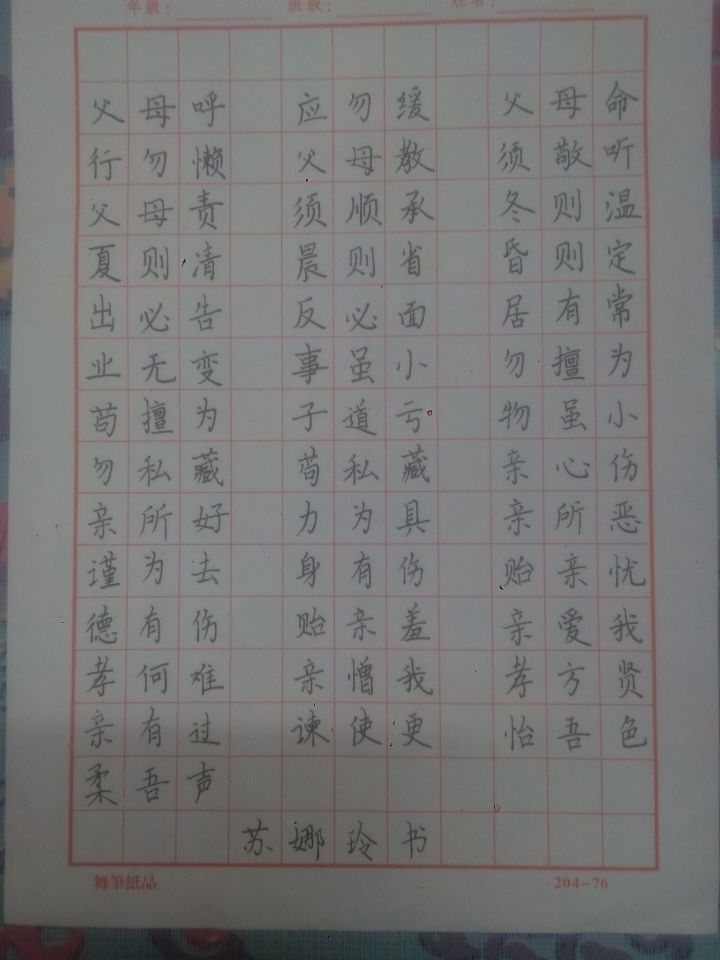 年級： 班級： 姓名：
父母呼 应勿缓 父母命
行勿懒 父母教 须敬听
父母责 须顺承 冬则温
夏则清 晨则省 昏则定
出必告 反必面 居有常
业无变 事虽小 勿擅为
苟擅为 子道亏 物虽小
勿私藏 苟私藏 亲心伤
亲所好 力为具 亲所恶
谨为去 身有伤 贻亲忧
德有伤 贻亲羞 亲爱我
孝何难 亲憎我 孝方贤
亲有过 谏使更 怡吾色
柔吾声
苏娜玲书
舞筆紙品 204-76